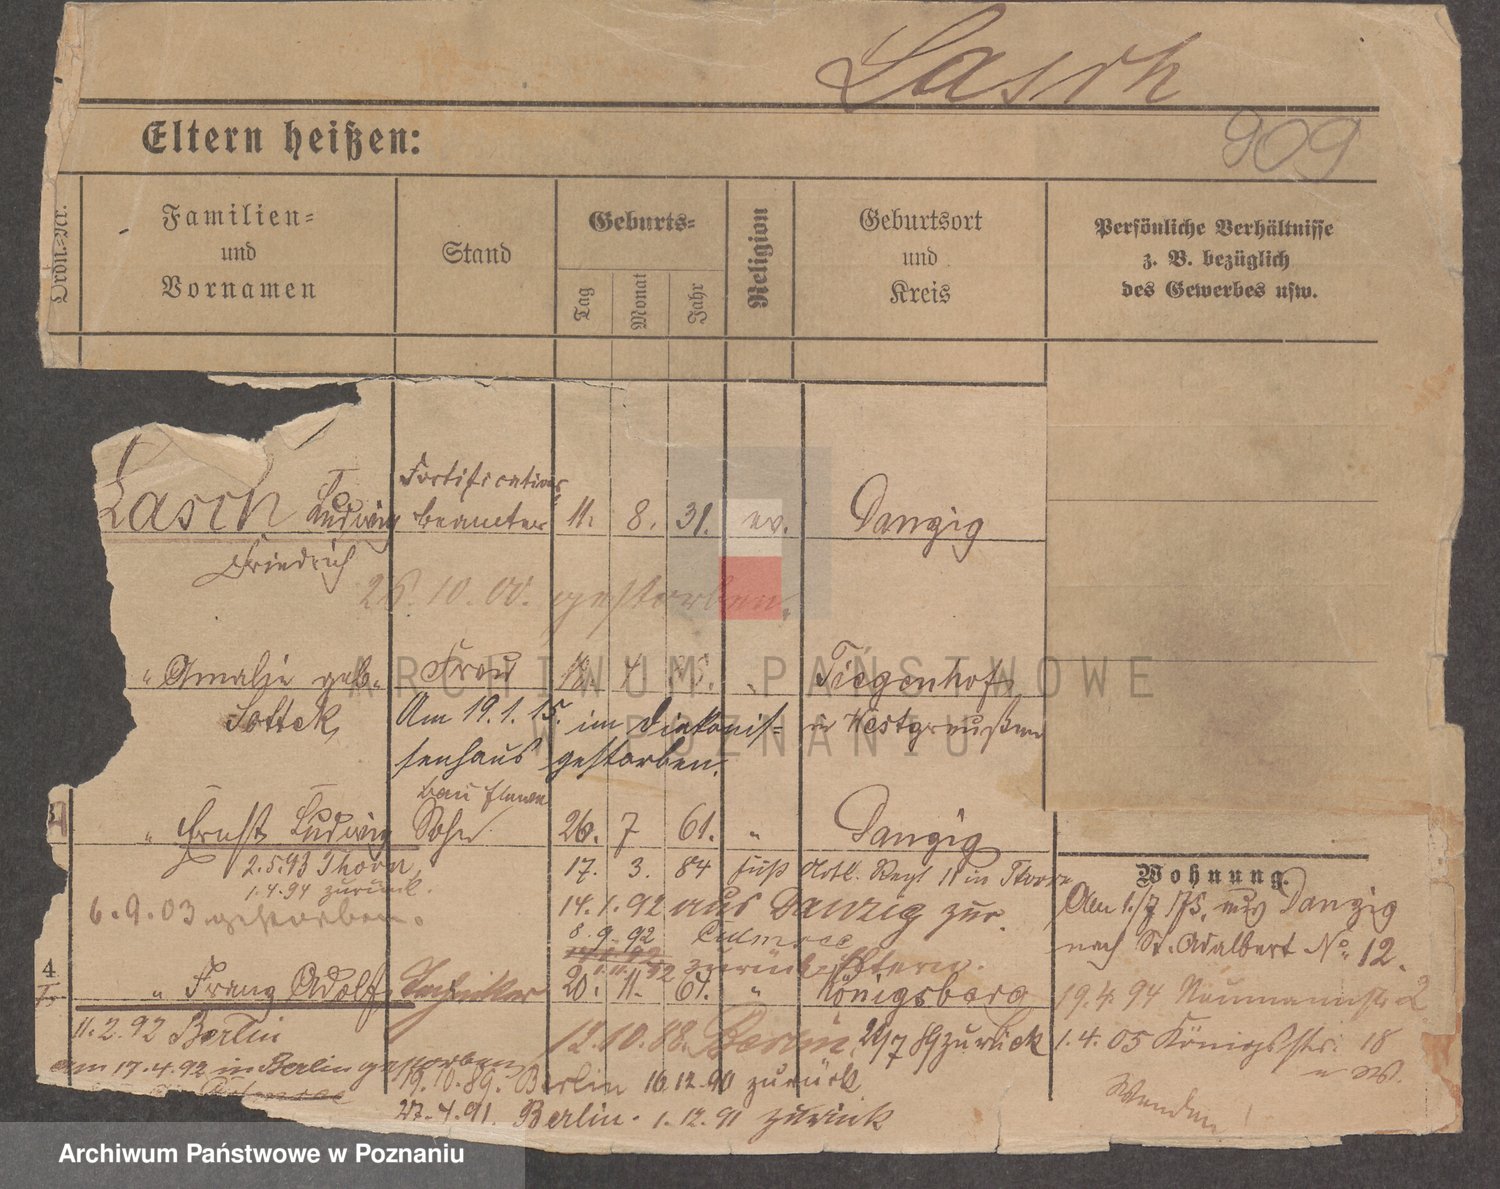 Lasch
909
Eltern heißen:
Ordn.-Nr.
Familien-
und
Vornamen
Stand
Geburts-
Tag
Monat
Jahr
Religion
Geburtsort
und
Kreis
Persönliche Verhältnisse
z. B. bezüglich
des Gewerbes usw.
Lasch Ludwig Fortifications beamter 11. 8. 31. ev. Danzig
Friedrich
26.10.00. gestorben.
" Amalie geb. Frau " Tiegenhof
Sottek Am 19.1.15. im Diakonis- Westpreußen
senhaus gestorben.
" Ernst Ludwig Sohn 26. 7 61. " Danzig
2.5.93 Thorn 17. 3. 84 Artl. Regt 11 in Thorn
1.4.94 zurück.
6.9.03 gestorben. 14.1.92 aus Danzig zur.
8.9.92 Culmsee
1.11.92 zurück
4
" Franz Adolf Techniker 20. 11. 61. " Königsberg
11.2.92 Berlin 12.10.88. Berlin. 20/7 89 zurück
am 17.4.92 in Berlin gestorben
19.10.89. Berlin 16.12.90 zurück
27.4.91. Berlin. 1.12.91 zurück
Wohnung.
Am 1./7 75. aus Danzig
nach St. Adalbert No. 12.
19.4.94 Naumannstr. 2
1.4.05 Königsstr. 18
Wenden!
ARCHIWUM PAŃSTWOWE
W POZNANIU
Archiwum Państwowe w Poznaniu